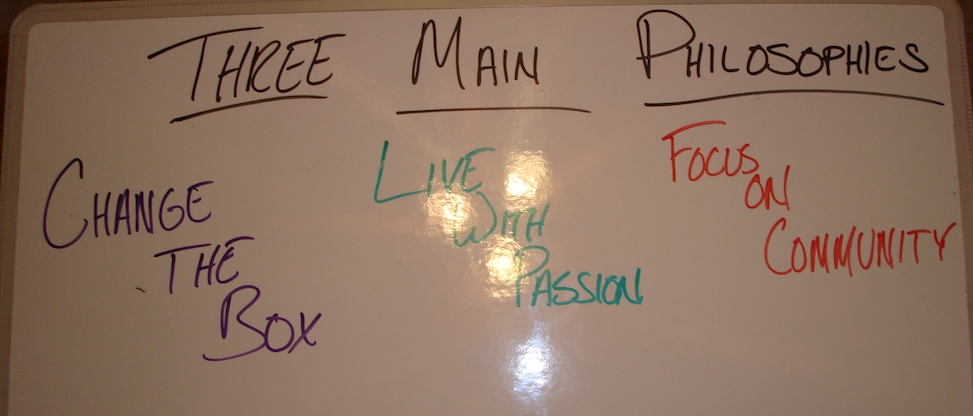 THREE MAIN PHILOSOPHIES
CHANGE
THE
BOX
LIVE
WITH
PASSION
FOCUS
ON
COMMUNITY